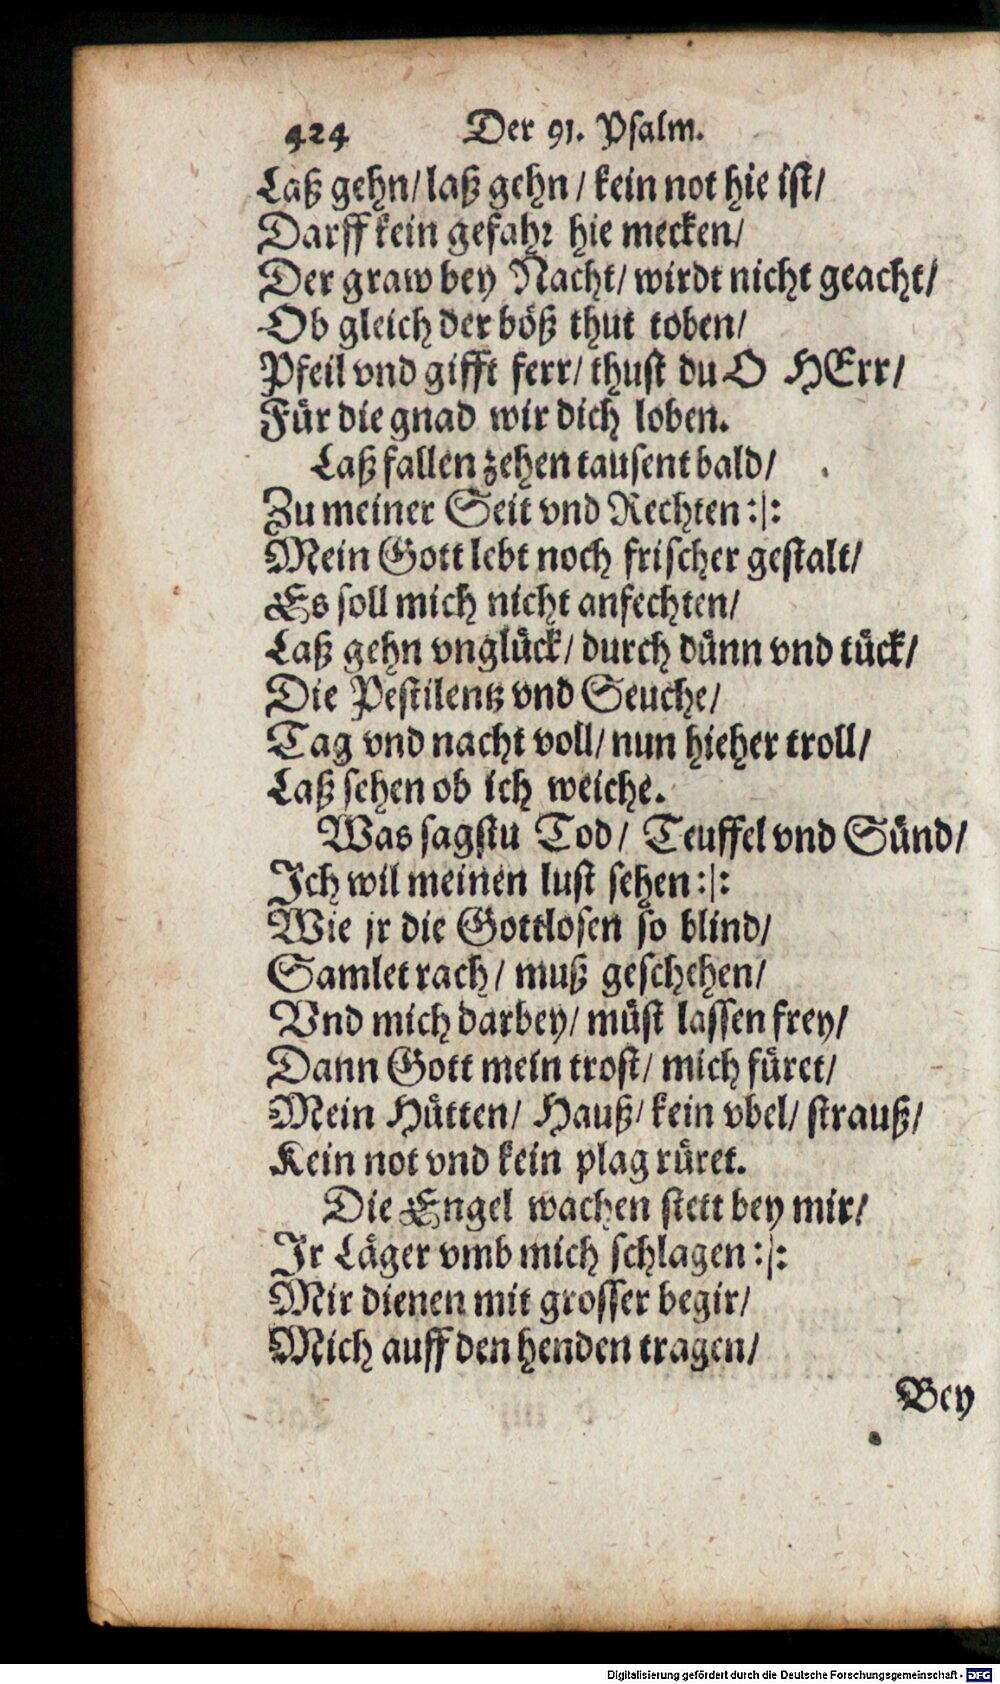 424 Der 91. Psalm.
Laß gehn/ laß gehn / kein not hie ist/
Darff kein gefahr hie mecken/
Der graw bey Nacht/ wirdt nicht geacht/
Ob gleich der böß thut toben/
Pfeil vnd gifft ferr/ thust du O HErr/
Für die gnad wir dich loben.
Laß fallen zehen tausent bald/
Zu meiner Seit vnd Rechten :|:
Mein Gott lebt noch frischer gestalt/
Es soll mich nicht anfechten/
Laß gehn vnglück/ durch dünn vnd tück/
Die Pestilentz vnd Seuche/
Tag vnd nacht voll/ nun hieher troll/
Laß sehen ob ich weiche.
Was sagstu Tod/ Teuffel vnd Sünd/
Ich wil meinen lust sehen :|:
Wie jr die Gottlosen so blind/
Samlet rach/ muß geschehen/
Vnd mich darbey/ müst lassen frey/
Dann Gott mein trost/ mich füret/
Mein Hütten/ Hauß/ kein vbel/ strauß/
Kein not vnd kein plag rüret.
Die Engel wachen stett bey mir/
Ir Läger vmb mich schlagen :|:
Mir dienen mit grosser begir/
Mich auff den henden tragen/
Bey
Digitalisierung gefördert durch die Deutsche Forschungsgemeinschaft - DFG